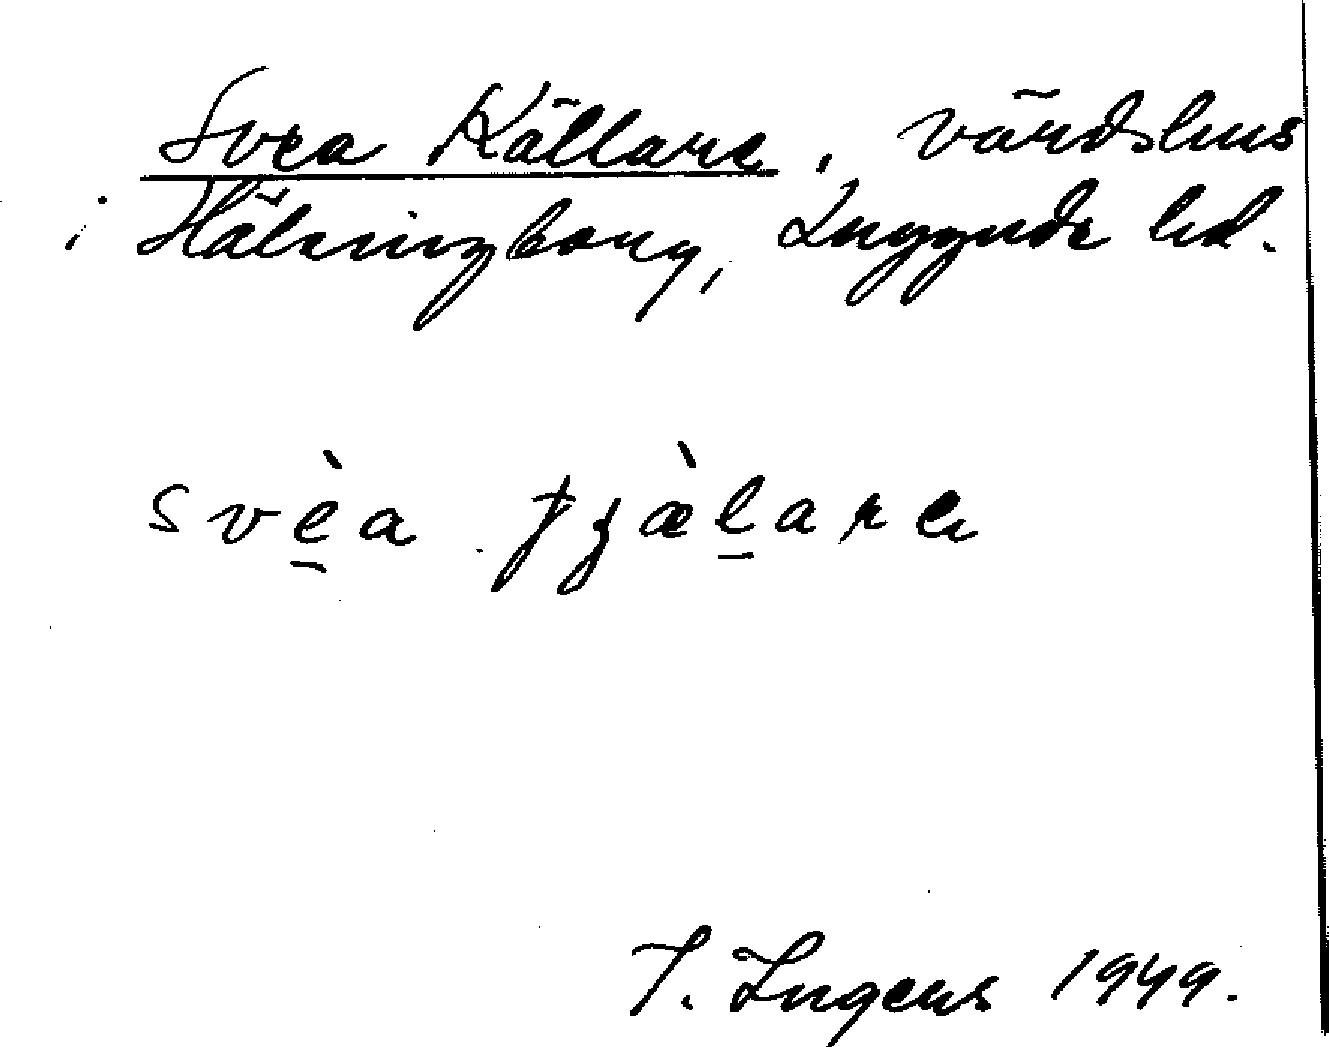 Svea Källare, värdshus
i Hälsingborg, Luggude hd.
svèa tjæ̀lare
I. Ingers 1949.